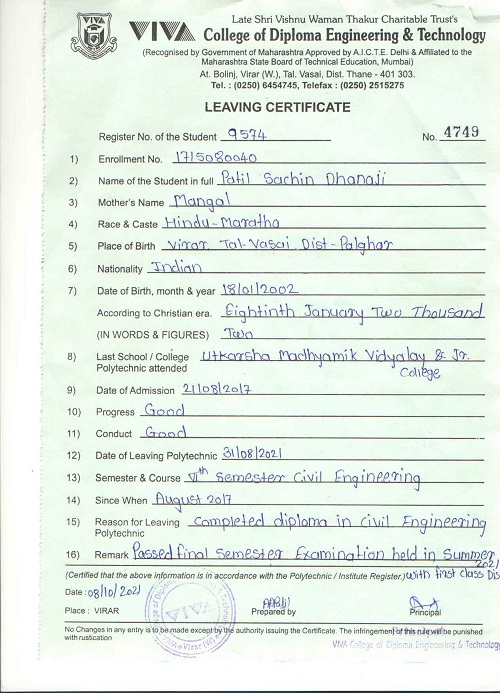 Late Shri Vishnu Waman Thakur Charitable Trust's
VIVA College of Diploma Engineering & Technology
(Recognised by Government of Maharashtra Approved by A.I.C.T.E. Delhi & Affiliated to the
Maharashtra State Board of Technical Education, Mumbai)
At. Bolinj, Virar (W.), Tal. Vasai, Dist. Thane - 401 303.
Tel. : (0250) 6454745, Telefax : (0250) 2515275
LEAVING CERTIFICATE
Register No. of the Student 9574 No. 4749
1) Enrollment No. 1715080040
2) Name of the Student in full Patil Sachin Dhanaji
3) Mother's Name Mangal
4) Race & Caste Hindu-Maratha
5) Place of Birth Virar Tal-Vasai Dist-Palghar
6) Nationality Indian
7) Date of Birth, month & year 18/01/2002
According to Christian era. Eightinth January Two Thousand
(IN WORDS & FIGURES) Two
8) Last School / College Utkarsha Madhyamik Vidyalay & Jr.
Polytechnic attended College
9) Date of Admission 21/08/2017
10) Progress Good
11) Conduct Good
12) Date of Leaving Polytechnic 31/08/2021
13) Semester & Course VIth Semester Civil Engineering
14) Since When August 2017
15) Reason for Leaving completed diploma in Civil Engineering
Polytechnic
16) Remark Passed final Semester Examination held in Summer
2021
(Certified that the above information is in accordance with the Polytechnic / Institute Register.) with first class Dis
Date : 08/10/2021
Place : VIRAR Prepared by Principal
VIVA
No Changes in any entry is to be made except by the authority issuing the Certificate. The infringement of this rule will be punished
with rustication
VIVA College of Diploma Engineering & Technology